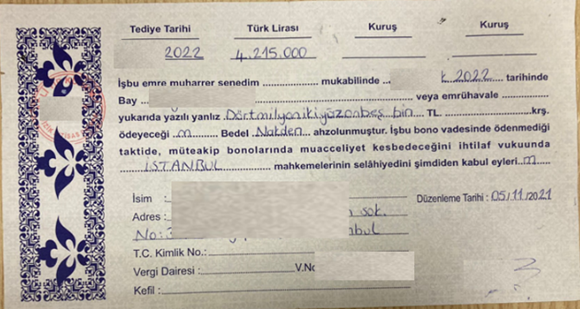 Tediye Tarihi Türk Lirası Kuruş Kuruş
2022 4.215.000
İşbu emre muharrer senedim ............ mukabilinde .. 2022 ..... tarihinde
Bay veya emrühavale
yukarıda yazılı yanlız .Dörtmilyonikiyüzonbeş bin... TL. krş.
ödeyeceği m ........ Bedel Nakden... ahzolunmuştur. İşbu bono vadesinde ödenmediği
taktide, müteakip bonolarında muacceliyet kesbedeceğini ihtilaf vukuunda
İSTANBUL mahkemelerinin selâhiyedini şimdiden kabul eyleri..m....
İsim : Düzenleme Tarihi : 05/11/2021
Adres : sok.
No:3 nbul
T.C. Kimlik No.:
Vergi Dairesi : V.No
Kefil :